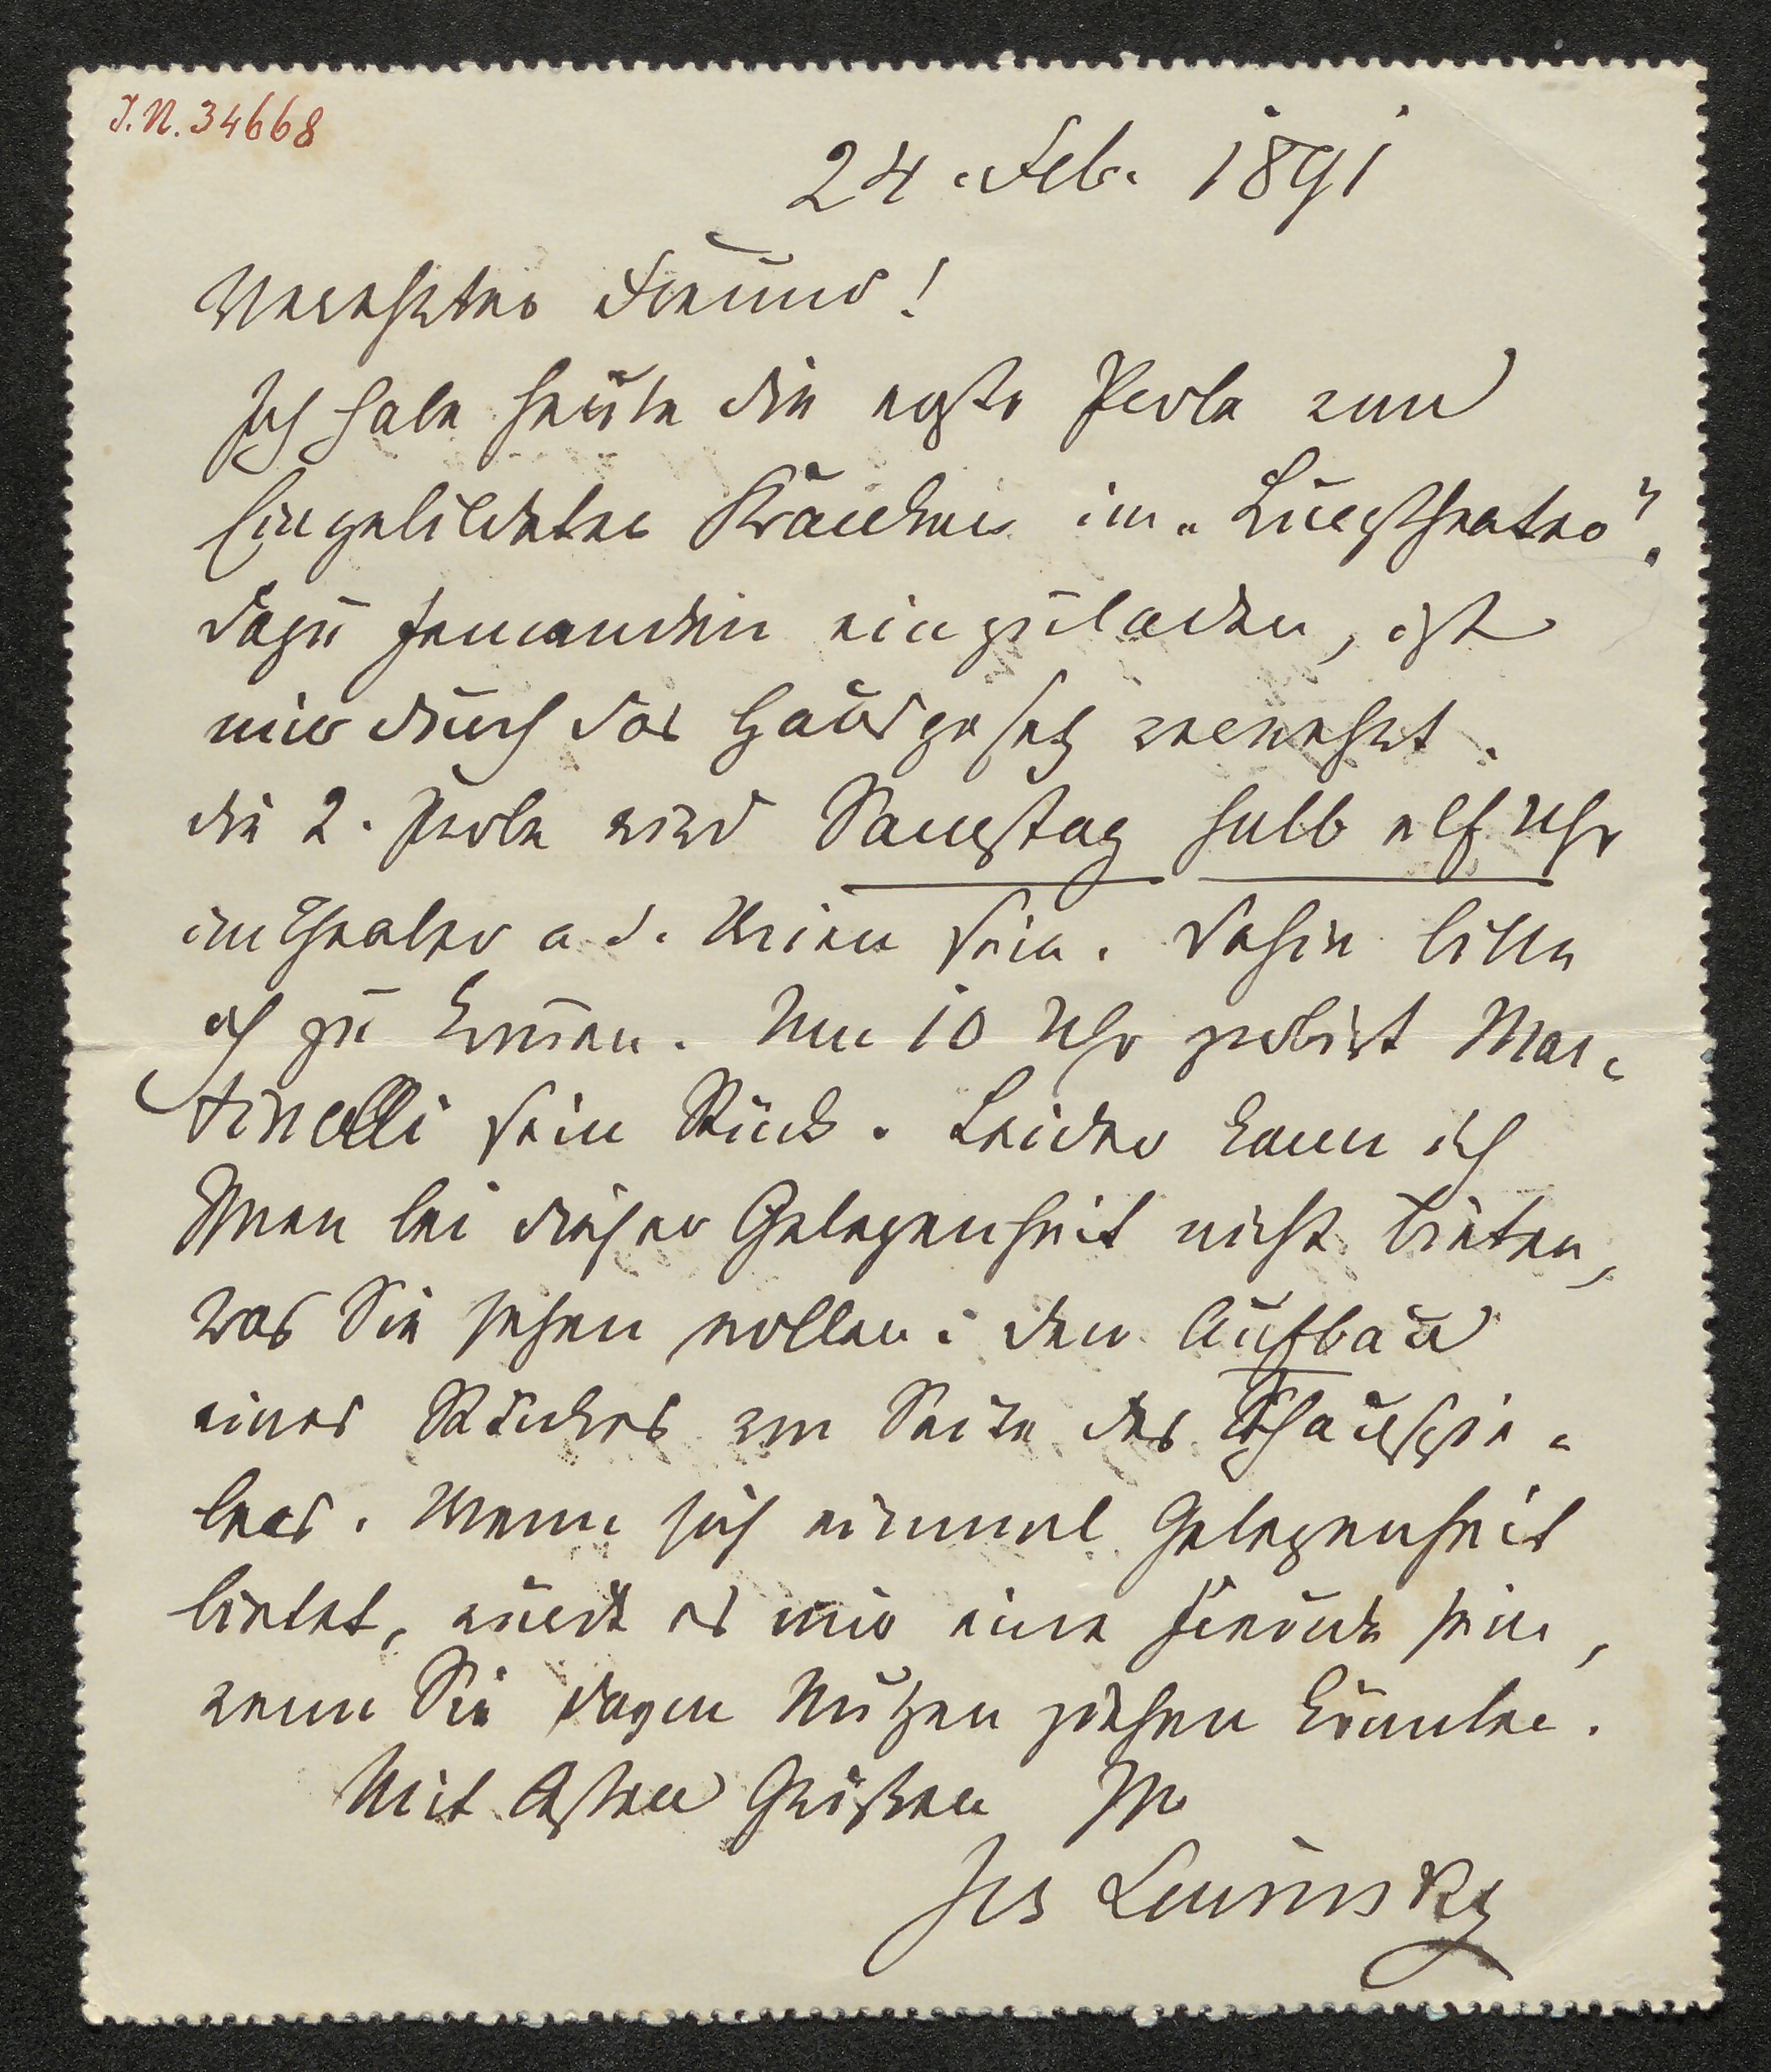 J.N. 34668
24. Feb. 1891
Verehrter Freund!
Ich habe heute die erste Probe vom
Eingebildeten Kranken im "Burgtheater".
Dazu Jemanden einzuladen, ist
mir durch das Hausgesetz verwehrt.
Die 2. Probe wird Samstag halb elf Uhr
im Theater a. d. Wien sein. Dahin bitte
ich zu kommen. Um 10 Uhr probirt Mar-
tinelli sein Stück. Leider kann ich
Ihnen bei dieser Gelegenheit nicht bieten,
was Sie sehen wollen: den Aufbau
eines Stückes von Seite des Schauspie-
lers. Wenn sich einmal Gelegenheit
bietet, würde es mir eine Freude sein,
wenn Sie davon Nutzen ziehen könnten.
Mit besten Grüßen Ihr
Jos Lewinsky